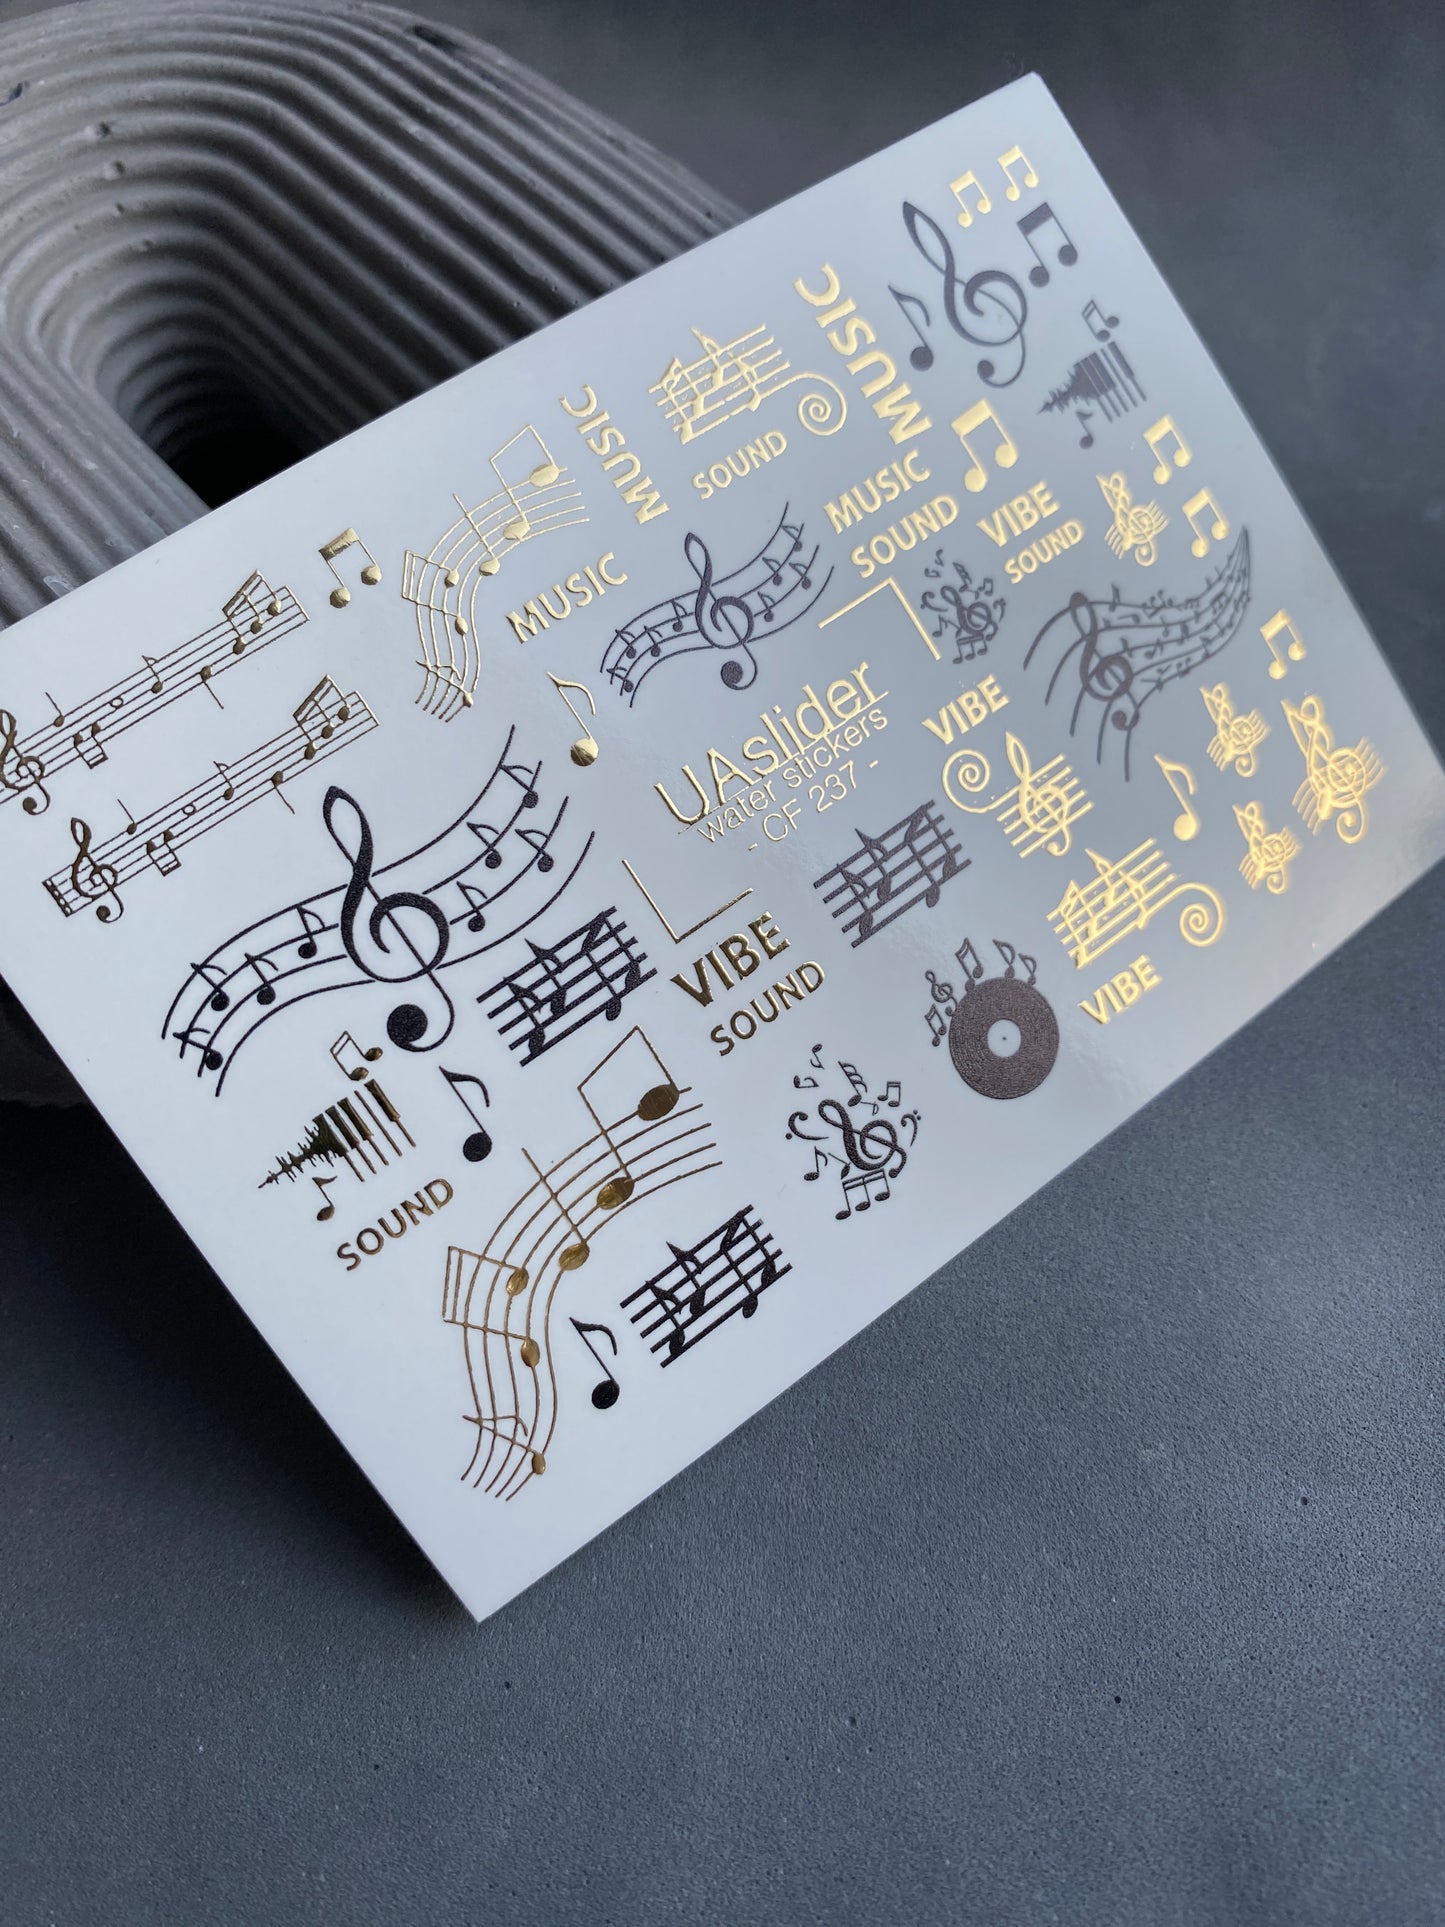 MUSIC
MUSIC
SOUND
MUSIC
MUSIC
SOUND
VIBE
SOUND
MUSIC
VIBE
UAslider
water stickers
- CF 237 -
VIBE
SOUND
VIBE
SOUND